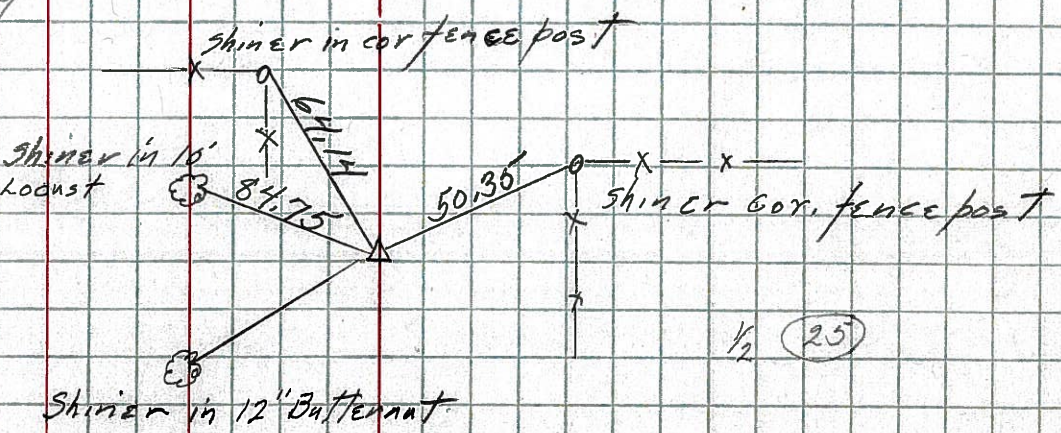 Shiner in cor fence post
Shiner in 10"
Locust
84.75
50.35
Shiner cor. fence post
1/2 25
Shiner in 12" Butternut